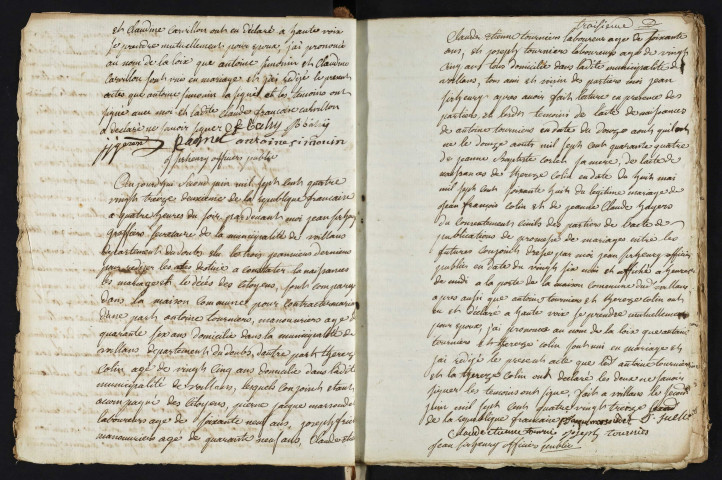 et Claudine Cavrillon ont en declaré a hautes voix
se prendre mutuellement pour epoux, j'ai prononcé
au nom de la loix que antoine simonin et Claudine
Cavrillon sont unie en mariage et j'ai redigé le present
actes que antoine simonin la signé et les temoins ont
signé avec moi et ladite Claude francoise Cavrillon
a declaré ne savoir signer
antoine simonin
officier public
Cejourdhuy second juin mil sept cent quatre
vingt treize deuxieme de la republique francaise
a quatre heures du soir pardevant moi jean
greffier secretaire de la municipalité de villars
departement du doubs elu le trois
pour rediger les actes destiné a constater les naissances
les mariages et le décès des citoyens, sont comparu
dans la maison Commune pour contracter mariage
dune part antoine tournier, manouvriers age de
quarante six ans domicilie dans la municipalité de
villars departement du doubs, dautre part therese
Colin age de vingt Cinq ans domicilie dans ladite
municipalité de villars, lesquels conjoints etant
acompagné des Citoyens, pierre jacque
laboureur age de soixante neuf ans, joseph
manouvriers age de quarante neuf ans, Claude
troisieme
Claude etienne tournier laboureur age de soixante
ans, et joseph tournier laboureur age de vingt
Cinq ans tous domicilié dans ladite municipalité de
villars, tous ami et voisin des parties moi jean
apres avoir fait lecture en presence des
parties et desdits temoins de lacte de naissances
de antoine tournier en date du douze aout
ne le douze aout mil sept cent quarante quatre
de jeanne baptiste sa mere, de lacte de
naissances de therese Colin en date du huit mai
mil sept cent soixante huit du legitime mariage de
jean francois Colin et de jeanne Claude
du Consentement civils des parties de lacte de
publications de promesse de mariages entre les
futures conjoints dressé par moi officier
public en date du vingt six mai et affiché a heures
de midi a la porte de la maison commune du villars
apres aussi que antoine tournier et therese Colin ont
eu et declaré a haute voix se prendre mutuellement
pour epoux, j'ai prononcé au nom de la loix que antoine
tournier et therese Colin sont uni en mariage et
j'ai redigé le present acte que led. antoine tournier
et la therese Colin ont declaré les deux ne savoir
signer les temoins ont signé, fait a villars le second
juin mil sept cent quatre vingt treize
de la republique francaise
Claude etienne tournier joseph tournier
jean officier public